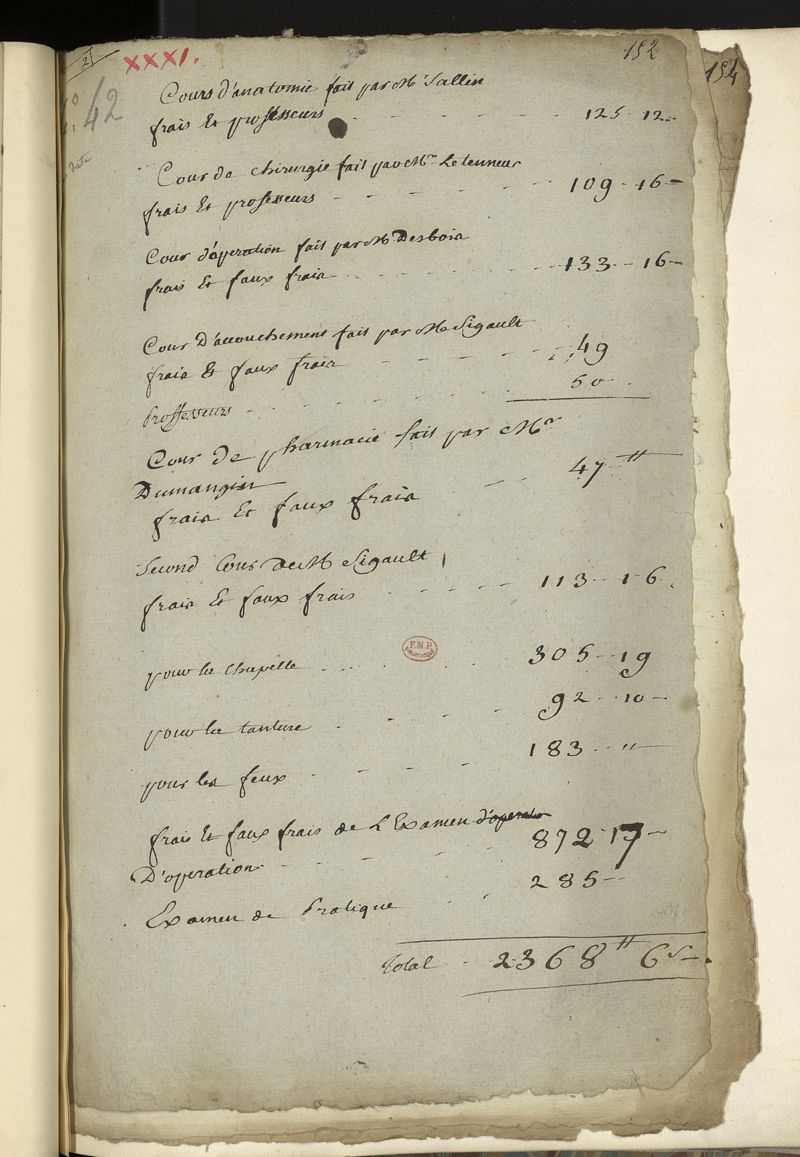 2
XXXI.
152
154
42
Cours d'anatomie fait par Mr Sallin
frais Et professeurs 125 - 12 -
Cour de chirurgie fait par Mr Letenneur
frais Et professeurs 109 - 16 -
Cour d'operation fait par M Desbois
frais Et faux frais 133 - 16 -
Cour D'accouchement fait par M Sigault
frais Et faux frais 49
professeurs 50
Cour de pharmacie fait par Mr
Dumangin
frais Et faux frais 47 #
Second Cours De M Sigault
frais Et faux frais 113 - 16
pour la chapelle 305 - 19
pour la tanture 92 - 10 -
pour les feux 183 - "
frais Et faux frais de L'Examen d'operation
D'operation 872 - 17 -
Examen de Pratique 285 -
E.M.P.
Total 2368 # 6 s -